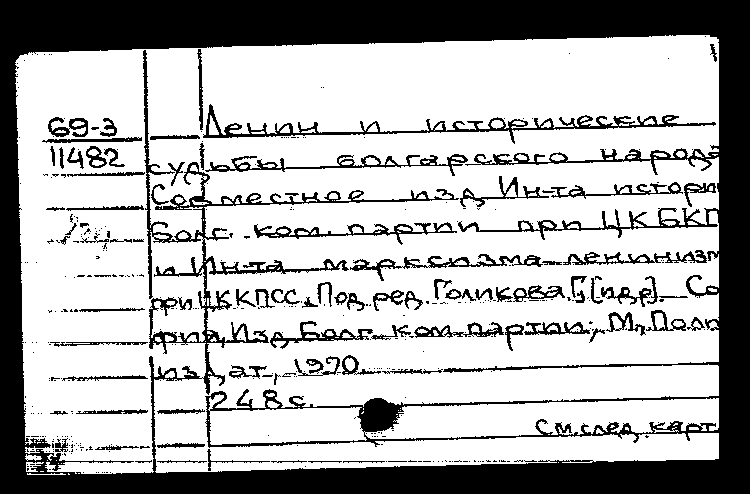 69-3
11482
Ленин и исторические
судьбы болгарского народа
Совместное изд. Ин-та истори
Болг. ком. партии при ЦК БКП
и Ин-та марксизма-ленинизм
при ЦК КПСС. Под ред. Голикова Г. [и др]. Со
фия, Изд. Болг. ком. партии; М., Полит
издат, 1970.
248 с.
См. след. карт.